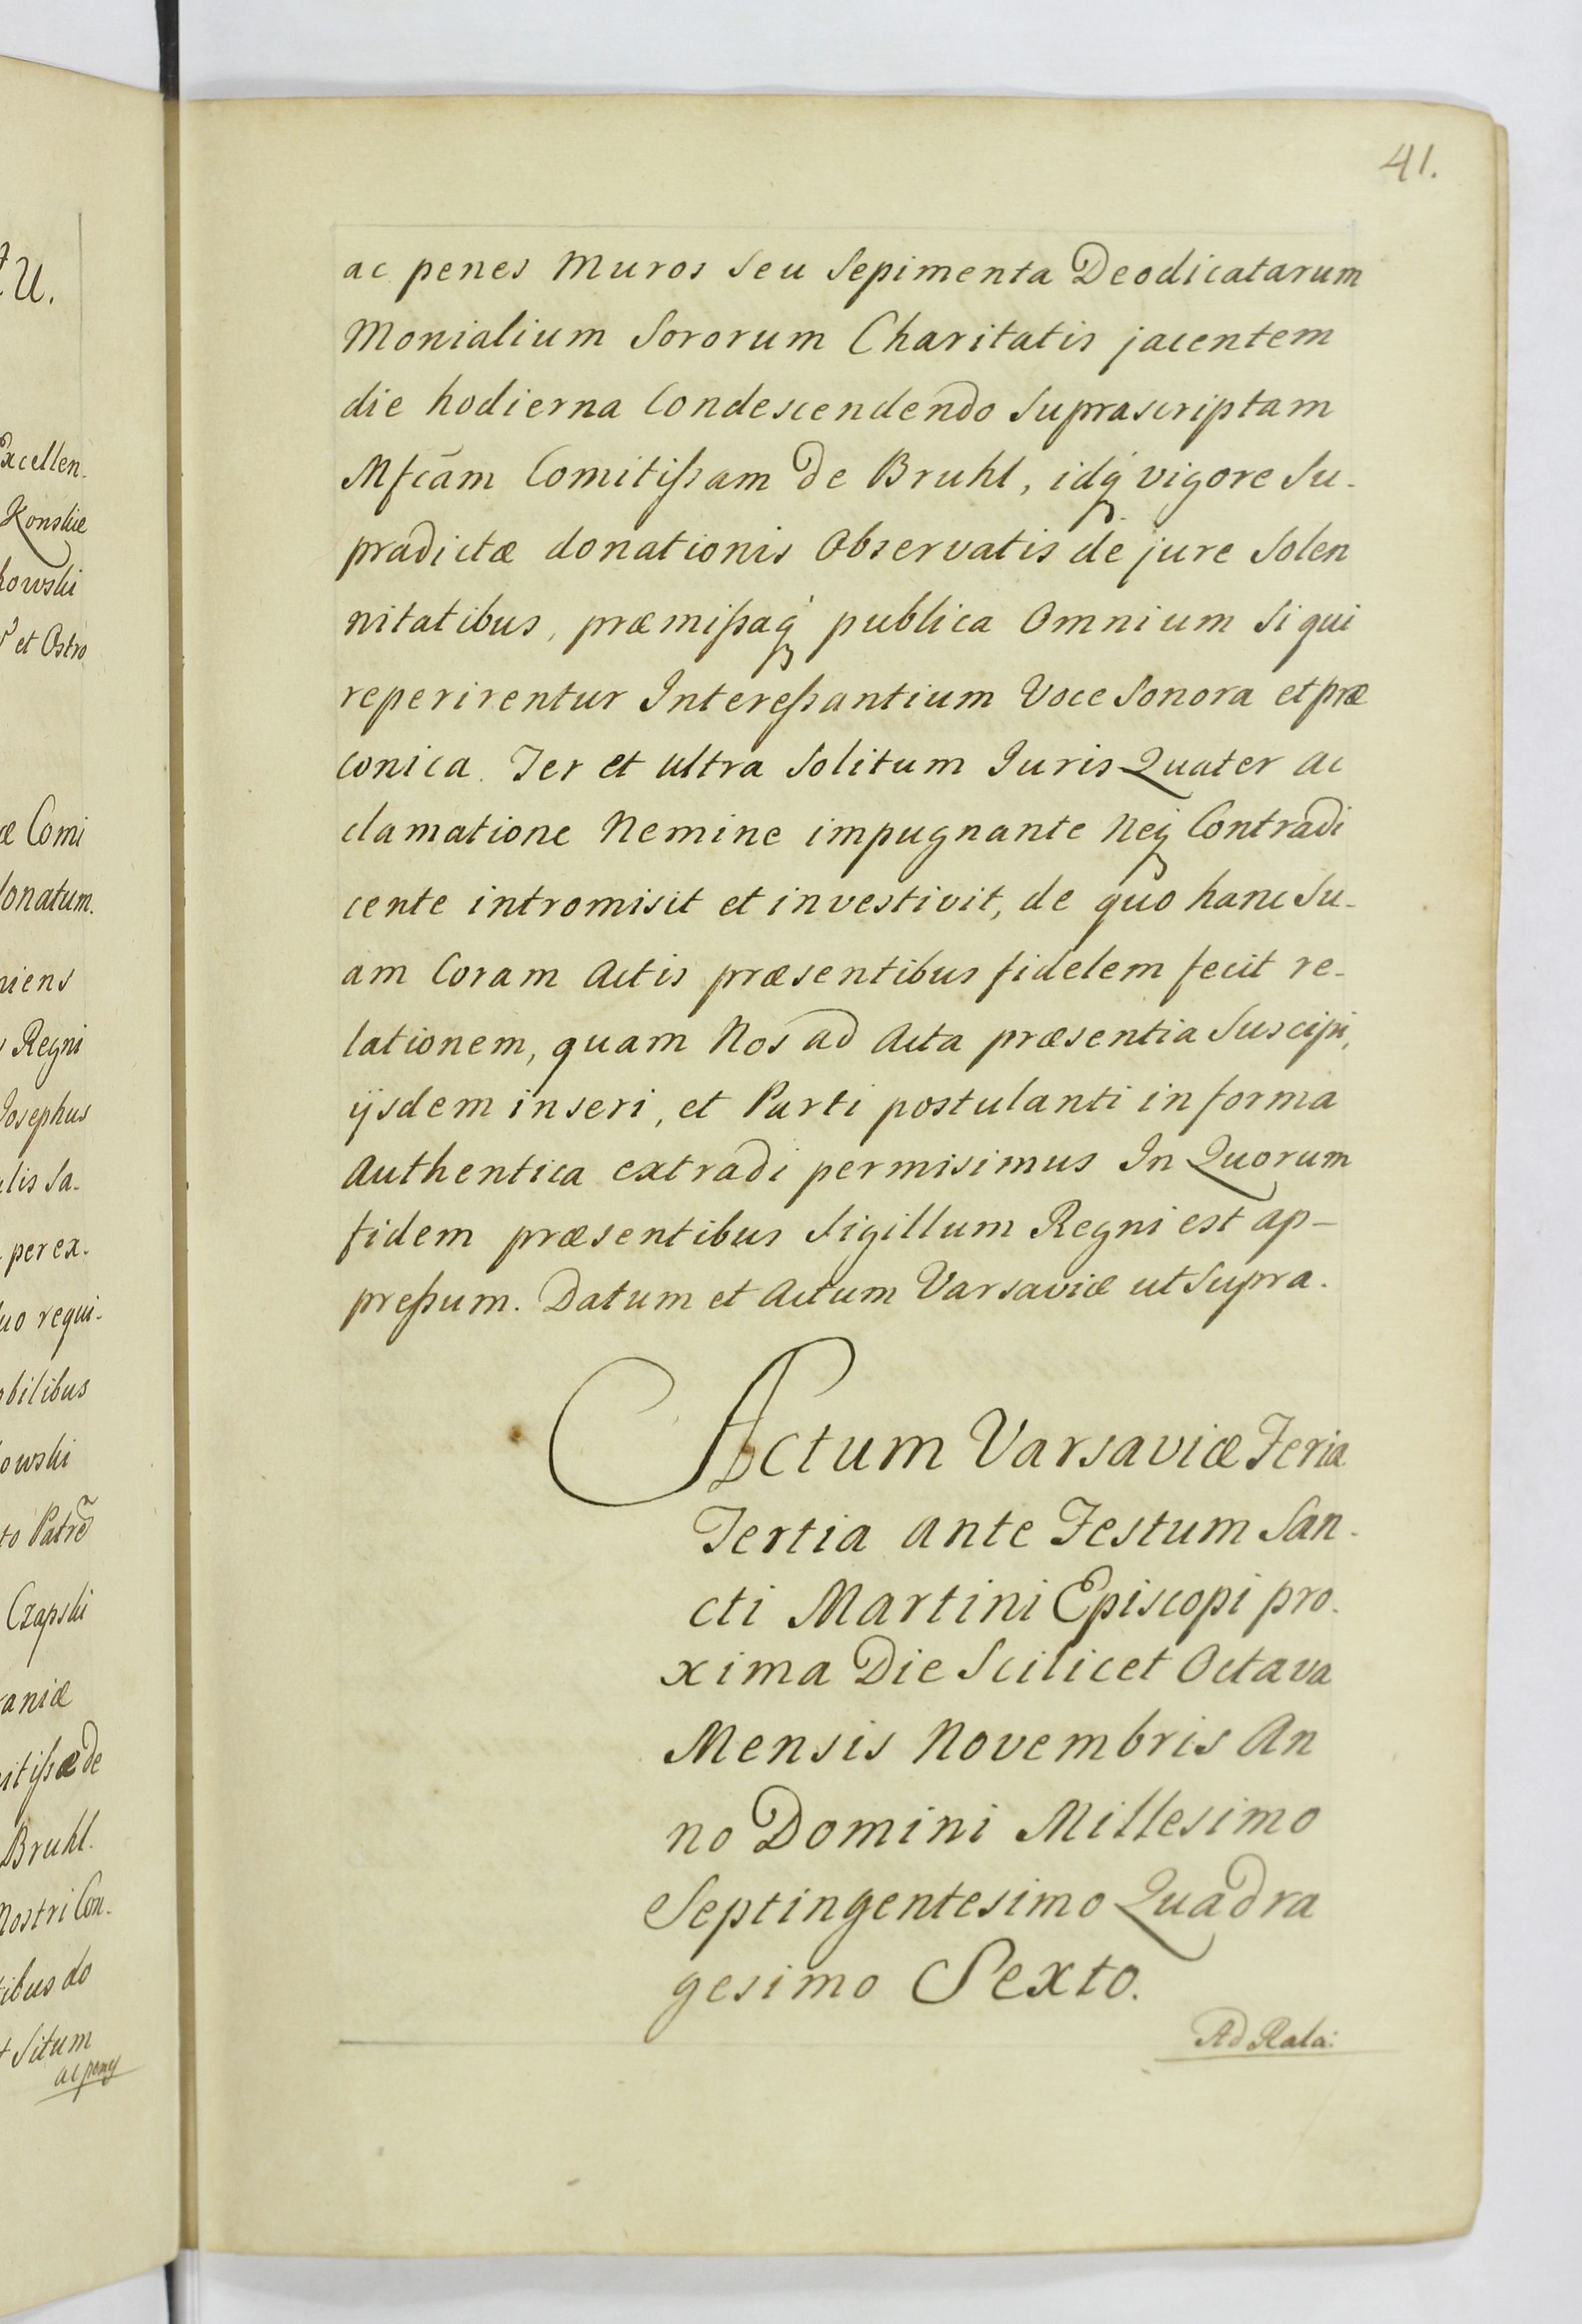 41.
ac penes Muros seu Sepimenta Deodicatarum
Monialium Sororum Charitatis jacentem
die hodierna Condescendendo Suprascriptam
Mfcãm Comitißam De Bruhl, idq́ vigore Su-
prædictæ donationis Observatis de jure Solen
nitatibus, præmißaq́ publica Omnium Si qui
reperirentur Intereßantium Voce Sonora et præ
conica Ter et ultra Solitum Juris Quater ac
clamatione Nemine impugnante Neq Contradi
cente intromisit et investivit, de quo hanc Su-
am Coram Actis præsentibus fidelem fecit re-
lationem, quam Nos ad Acta præsentia Suscipi,
ijsdem inseri, et Parti postulanti in forma
Authentica extradi permisimus In Quorum
fidem præsentibus Sigillum Regni est ap-
preßum. Datum et Actum Varsaviæ ut Supra.
Actum Varsaviæ Feria
Tertia ante Festum San-
cti Martini Episcopi pro-
xima Die Scilicet Octava
Mensis Novembris An
no Domini Millesimo
Septingentesimo Quadra
gesimo Sexto.
Ad Rela:
Excellen-
Konskie
et Ostro
Comi
Regni
Josephus
per ex-
Czapski
Bruhl.
Nostri Con-
Situm
ac penes